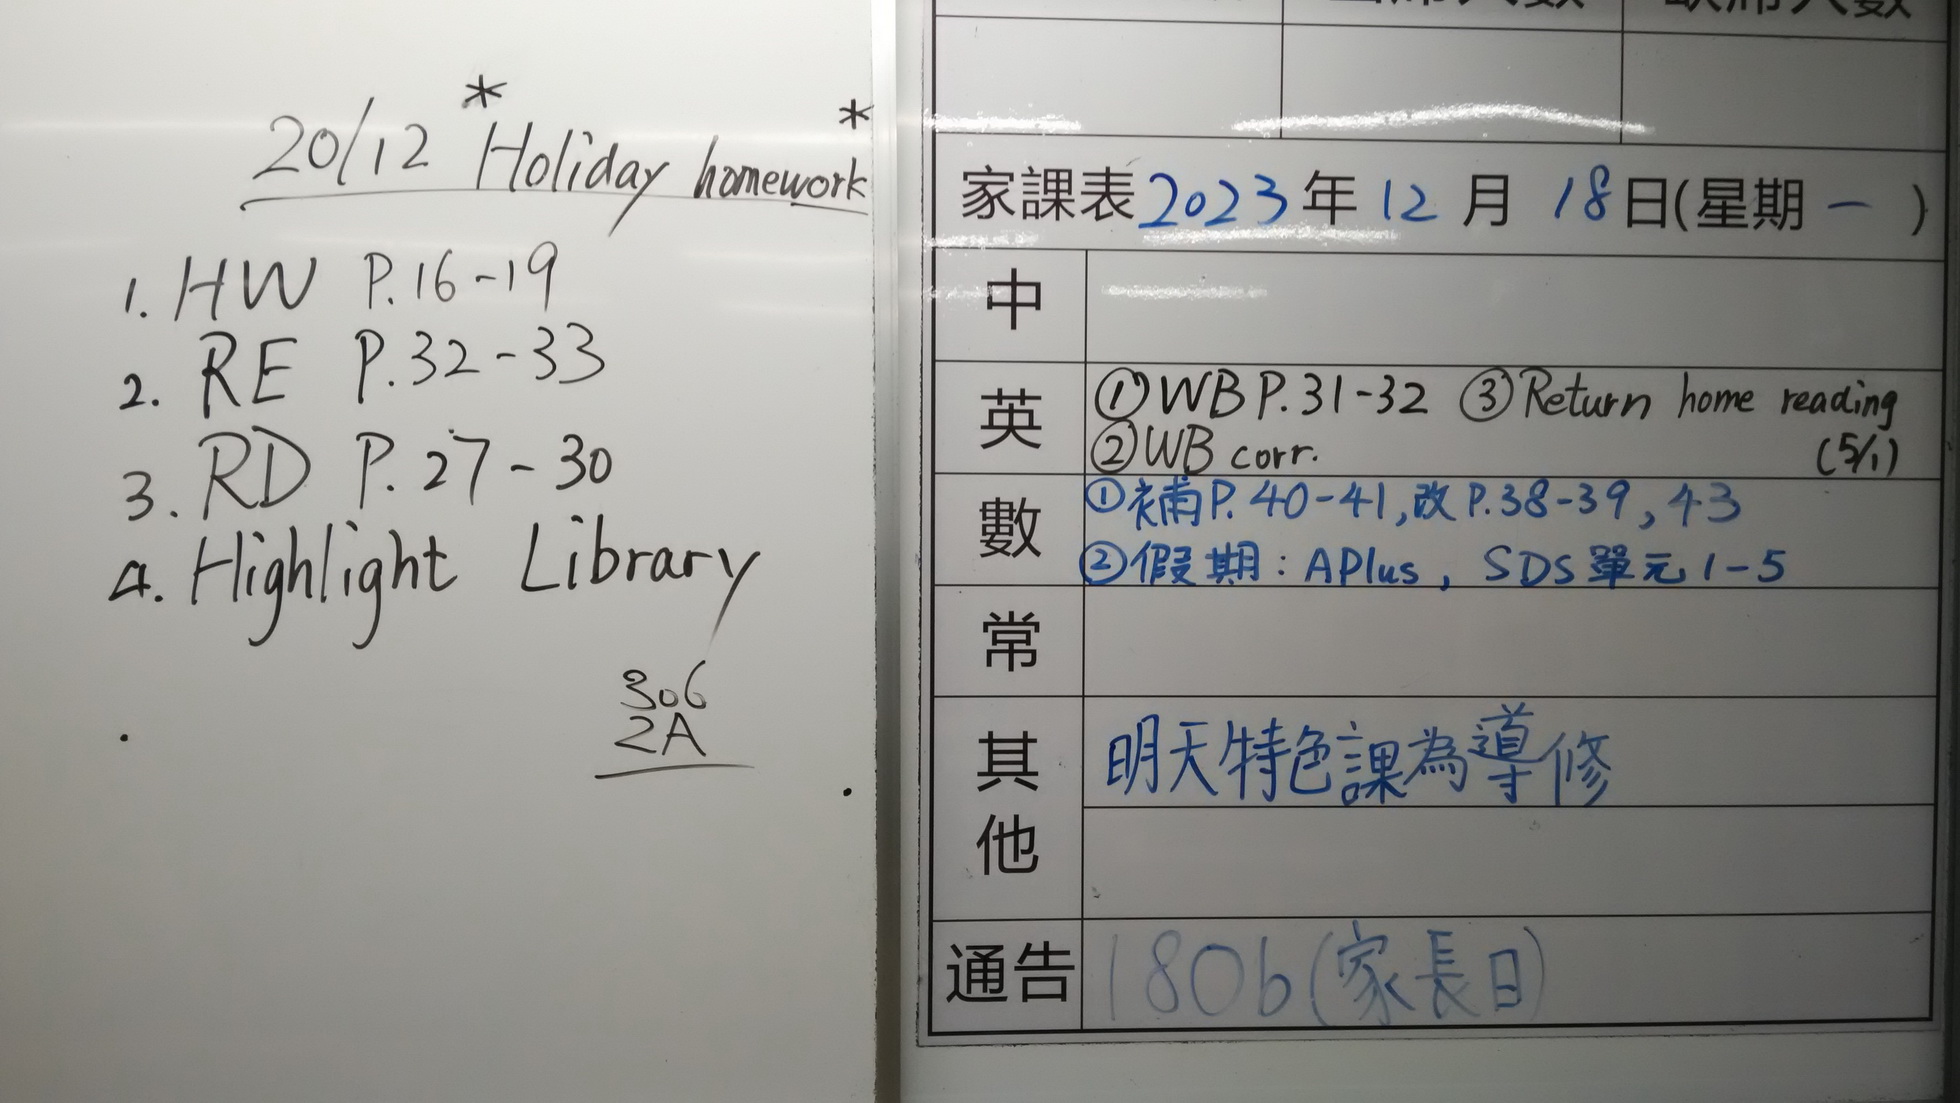 20/12 *Holiday homework*
1. HW P.16-19
2. RE P.32-33
3. RD P.27-30
4. Highlight Library
306
2A
家課表2023年12月18日(星期一)
中
英
①WB P.31-32 ③Return home reading
②WB corr. (5/1)
數
①補P.40-41,改P.38-39,43
②假期:APlus, SDS單元1-5
常
其他
明天特色課為導修
通告
180b(家長日)